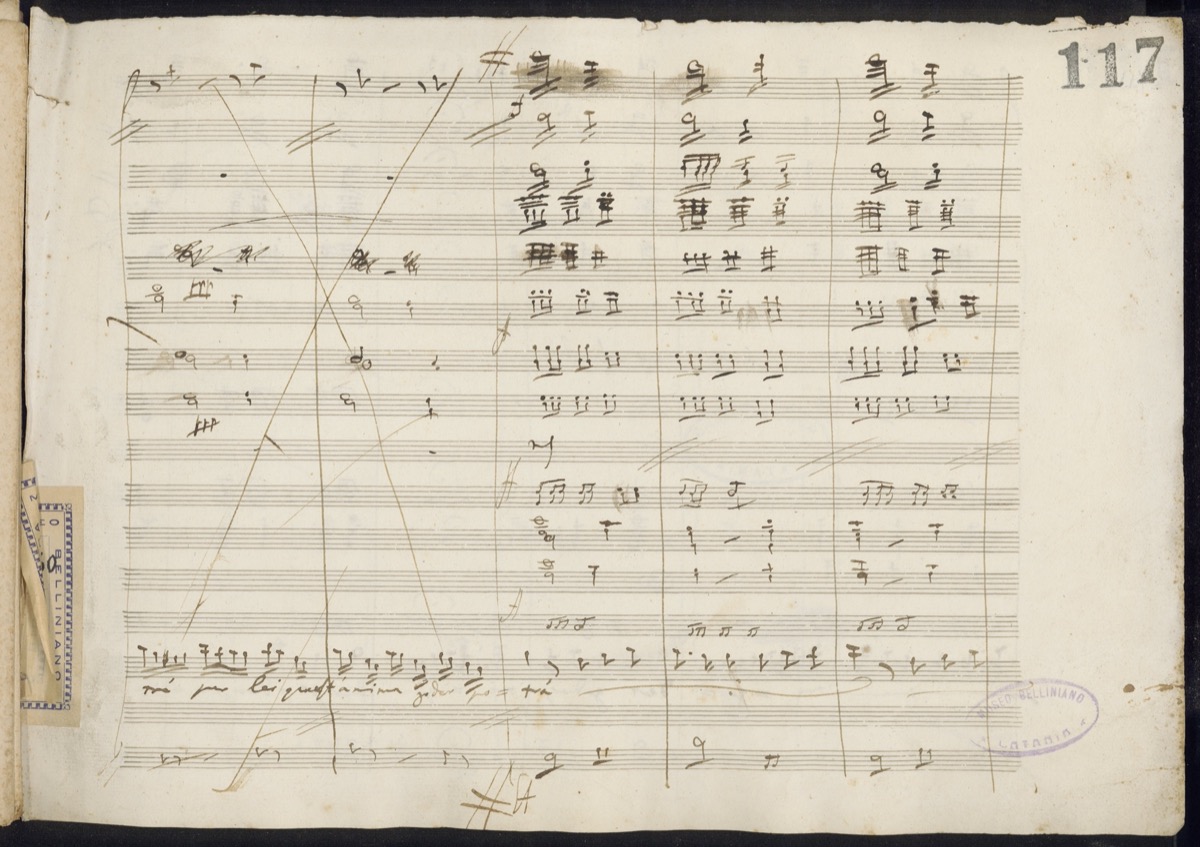 117
BELLINIANO
mà per lei quest'anima goder po - trà
MUSEO BELLINIANO
CATANIA